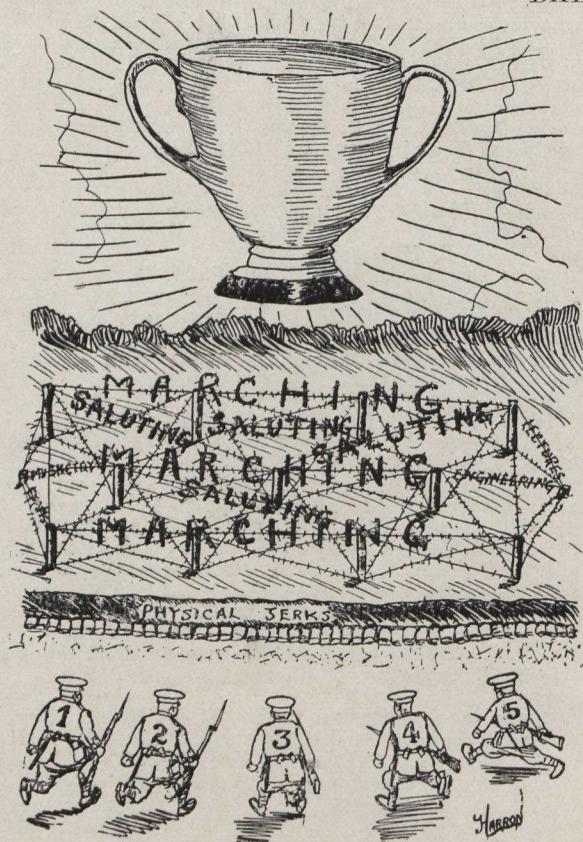 MARCHING
SALUTING
SALUTING
SALUTING
LECTURES
MUSKETRY
MARCHING
ENGINEERING
SALUTING
MARCHING
PHYSICAL JERKS
1
2
3
4
5
HARRON